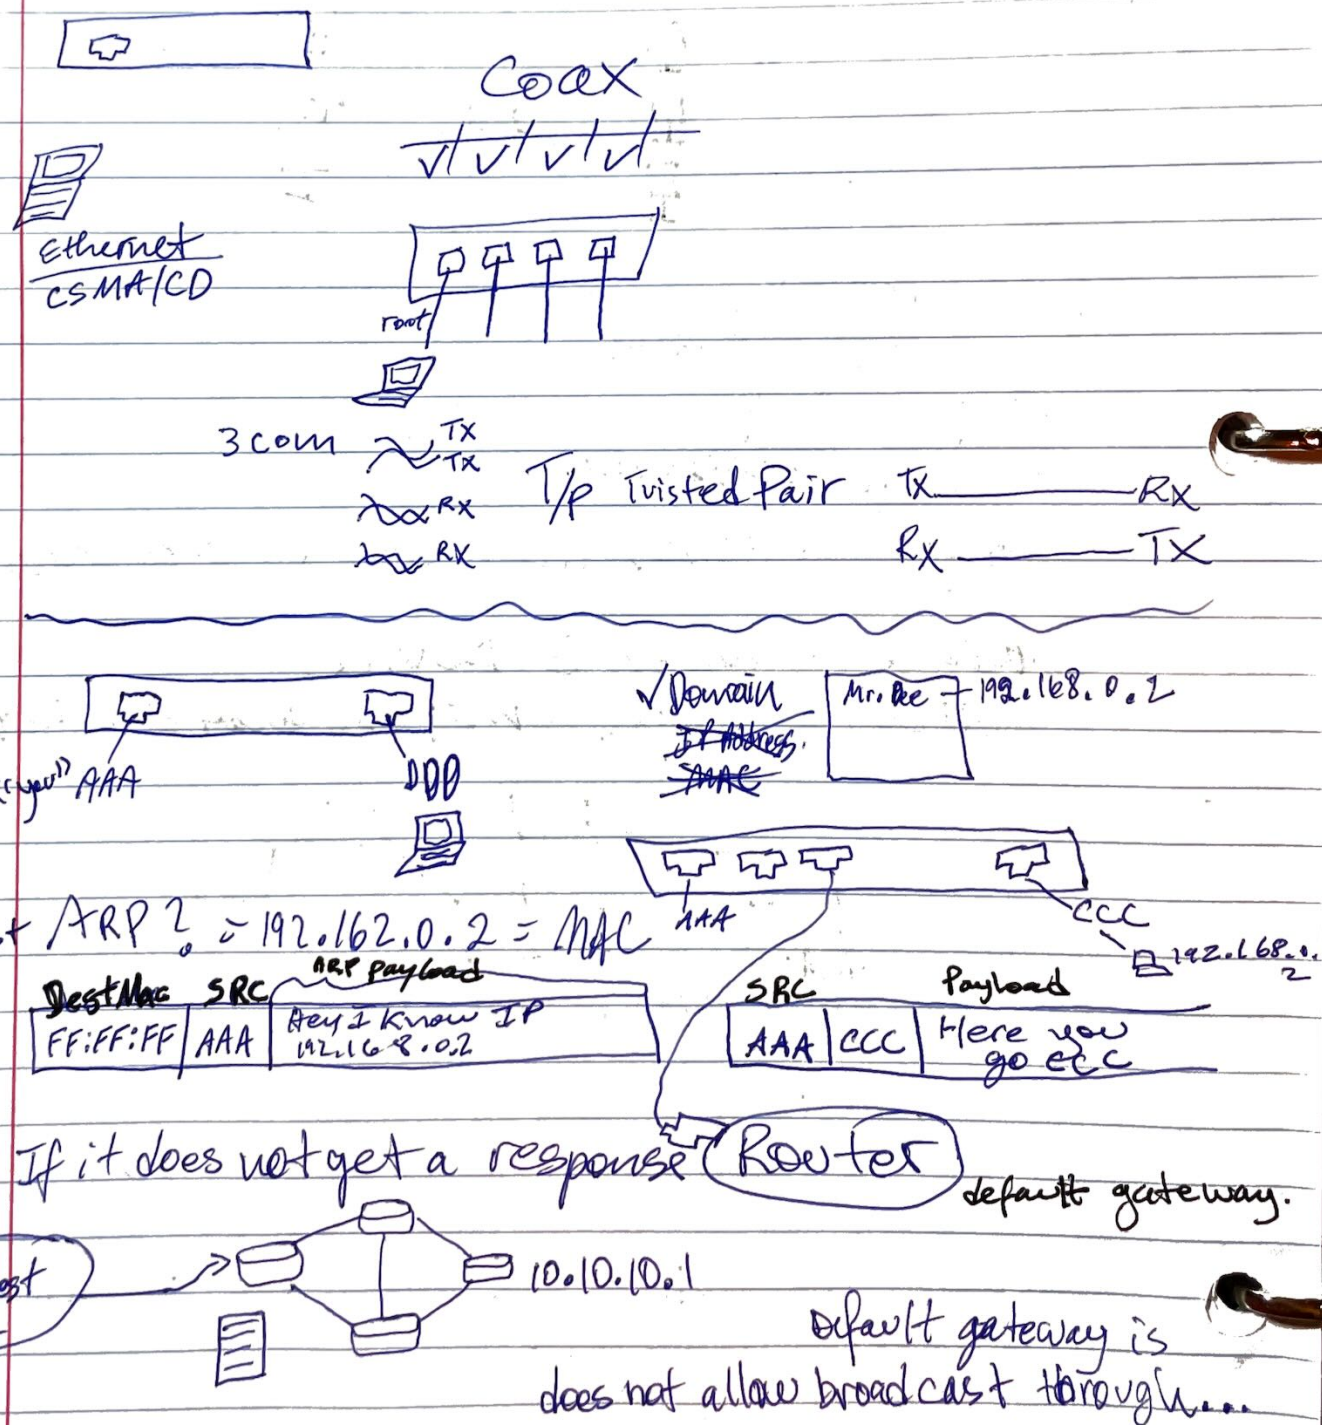 Coax
Ethernet
CSMA/CD
root
3com
TX
TX
RX
RX
T/p Twisted Pair
TX RX
RX TX
✓Domain
IP Address.
MAC
Mr. Dee - 192.168.0.2
"you" AAA
DDD
AAA
CCC
192.168.0.
2
ARP? = 192.162.0.2 = MAC
Dest Mac SRC ARP payload
FF:FF:FF AAA Hey I know IP
192.168.0.2
SRC Payload
AAA CCC Here you
go CCC
If it does not get a response Router
default gateway.
10.10.10.1
Default gateway is
does not allow broadcast through...